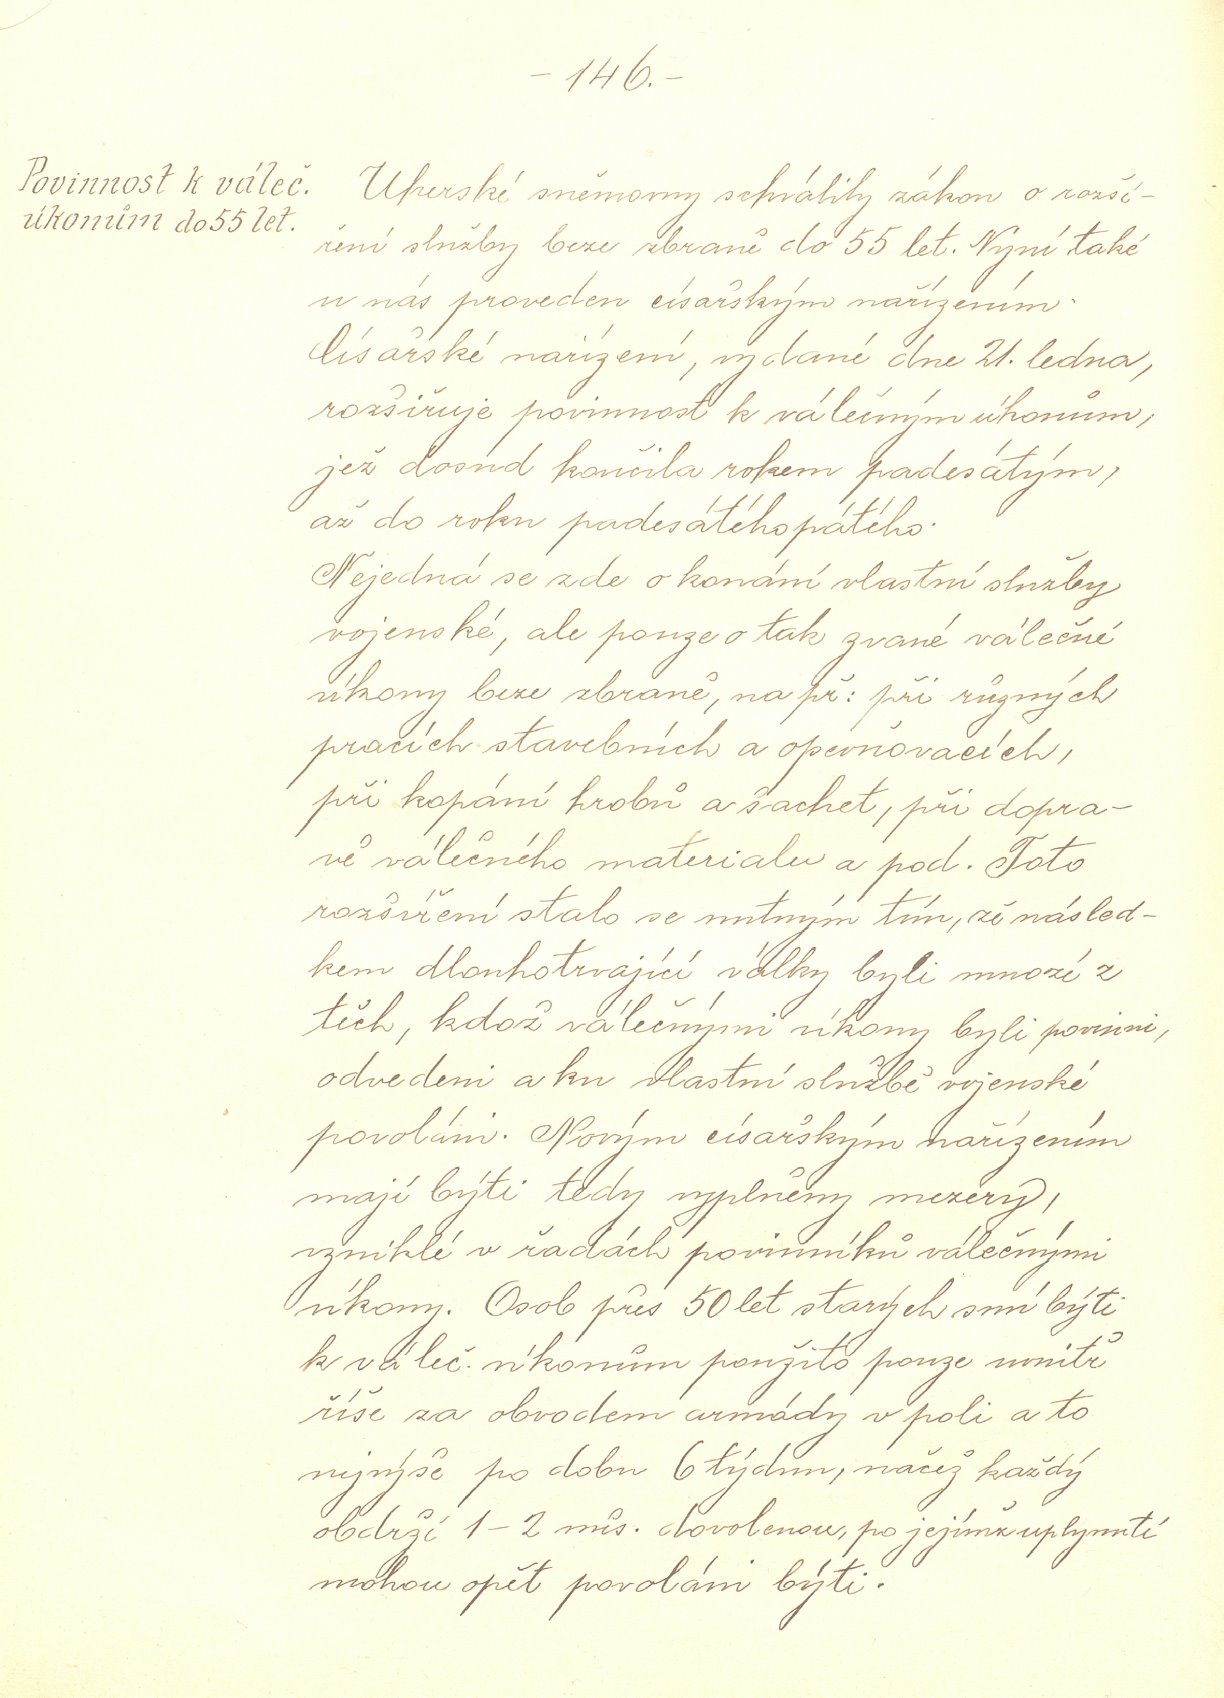 - 146. -
Povinnost k váleč.
úkonům do 55 let.
Uherské sněmovny schválily zákon o rozší-
ření služby beze zbraně do 55 let. Nyní také
u nás proveden císařským nařízením.
Císařské nařízení, vydané dne 21. ledna,
rozšiřuje povinnost k válečným úkonům,
jež dosud končila rokem padesátým,
až do roku padesátéhopátého.
Nejedná se zde o konání vlastní služby
vojenské, ale pouze o tak zvané válečné
úkony beze zbraně, na př: při různých
pracích stavebních a opevňovacích,
při kopání hrobů a šachet, při dopra-
vě válečného materialu a pod. Toto
rozšíření stalo se nutným tím, že násled-
kem dlouhotrvající války byli mnozí z
těch, kdož válečnými úkony byli povinni,
odvedeni a ku vlastní službě vojenské
povoláni. Novým císařským nařízením
mají býti tedy vyplněny mezery,
vzniklé v řadách povinníků válečnými
úkony. Osob přes 50 let starých smí býti
k váleč. úkonům použito pouze uvnitř
říše za obvodem armády v poli a to
nejvýše po dobu 6 týdnu, načež každý
obdrží 1-2 měs. dovolenou, po jejímž uplynutí
mohou opět povoláni býti.